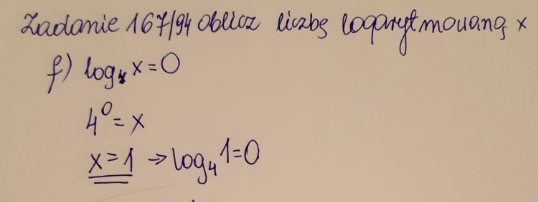 Zadanie 167/94 oblicz liczbę logarytmowaną x
f) log₄ x = 0
4⁰ = x
x = 1 → log₄ 1 = 0